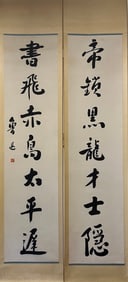 帝鎖黑龍才士隱
書飛赤鳥太平遲